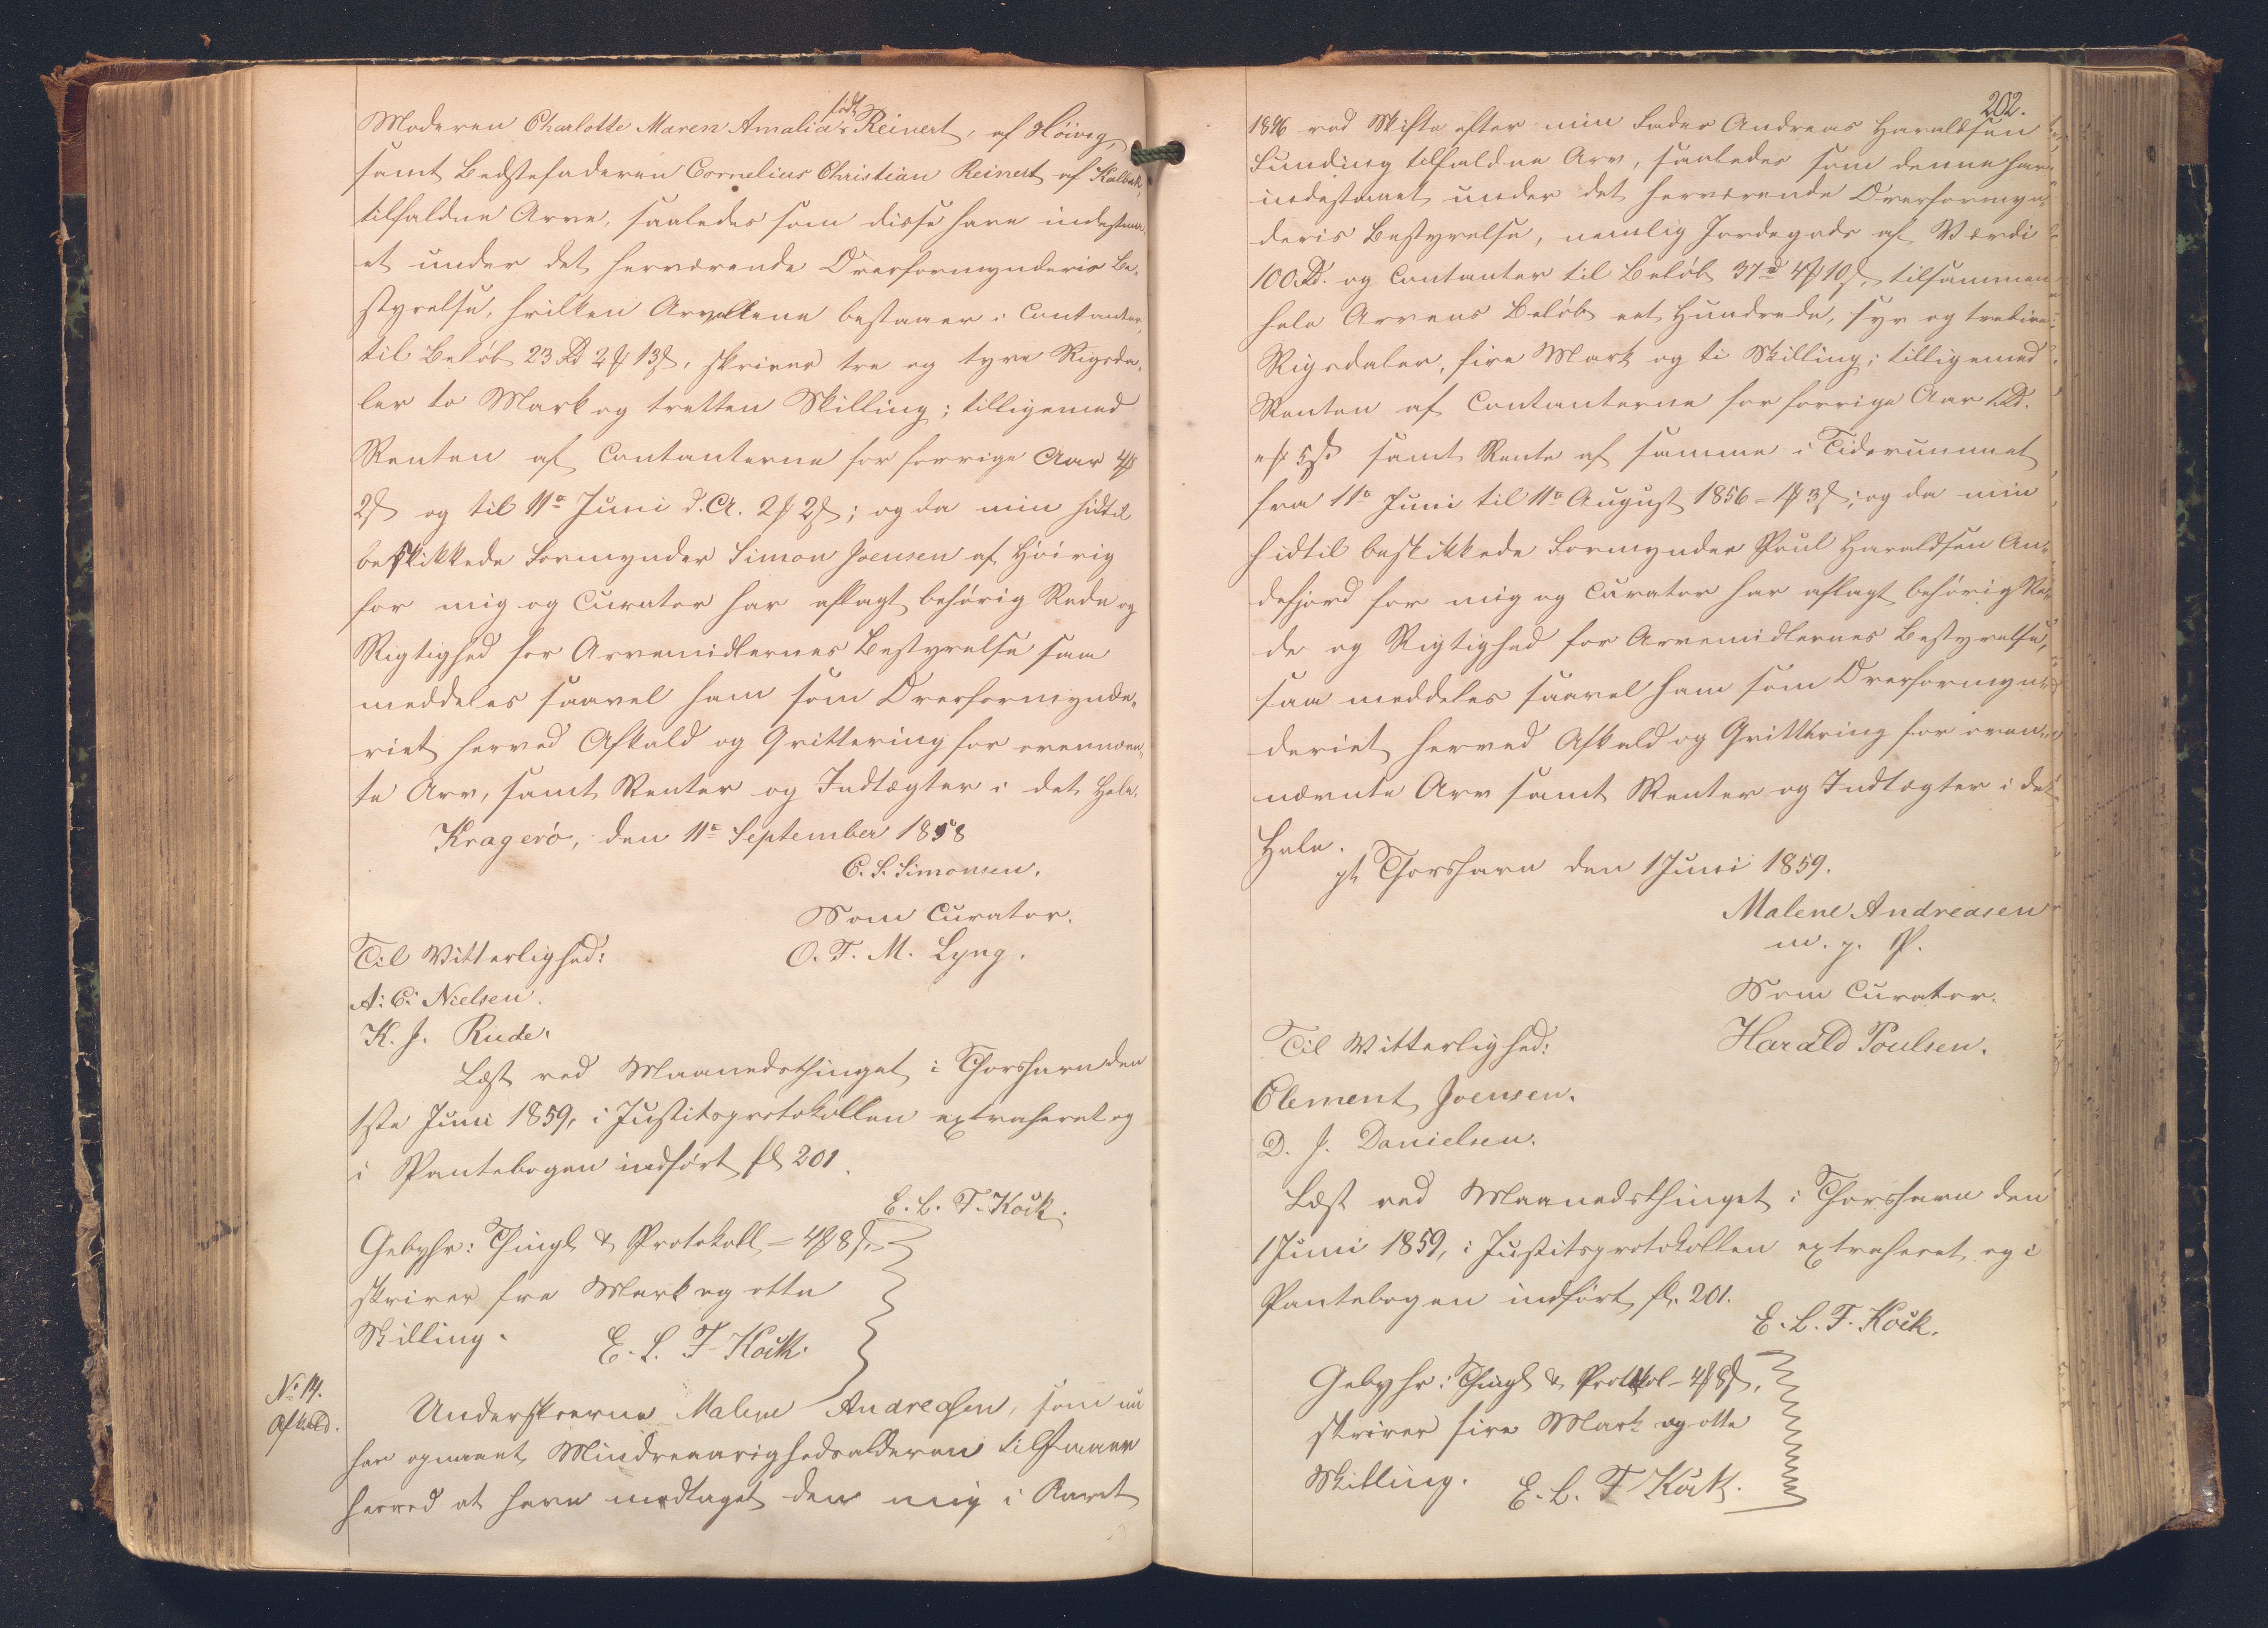 Moderen Charlotte Maren Amalia født Reinert, af Höivig,
samt Bedstefaderen Cornelius Christian Reinert af Kalbak,
tilfaldne Arve, saaledes som disse have indestaa-
et under det herværende Overformynderis Be-
styrelse, hvilken Arv bestaaer i Contanter,
til Beløb 23 Rd 2 ₰ 13 ß, skriver tre og tyve Rigsda-
ler to Mark og tretten Skilling; tilligemed
Renten af Contanterne for forrige Aar 4 ₰
2 ß og til 11te Juni d.A. 2 ₰ 2 ß; og da min hidtil
beskikkede Formynder Simon Joensen af Höivig
for mig og Curator har aflagt behørig Rede og
Rigtighed for Arvemidlernes Bestyrelse saa
meddeles saavel ham som Overformynde-
riet herved Afkald og Qvittering for ovennævn-
te Arv, samt Renter og Indtægter i det Hele.
Kragerö, den 11te September 1858
C. S. Simonsen.
Som Curator.
Til Vitterlighed: O. T. M. Lyng.
A. C. Nielsen.
K. J. Rude.
Læst ved Maanedsthinget i Thorshavn den
1ste Juni 1859, i Justitsprotokollen extraheret og
i Pantebogen indført fol 201.
E. L. T. Kock.
Gebyhr: Thingl & Protokoll - 4 ₰ 8 ß,
skriver fire Mark og otte
Skilling. E. L. T. Kock.
No 14.
Afkald.
Underskrevne Malene Andreasen, som nu
har opnaaet Mindreaarighedsalderen tilstaaer
herved at have modtaget den mig i Aaret
202.
1846 ved Skifte efter min Fader Andreas Haraldsen
Funding tilfaldne Arv, saaledes som denne har
indestaaet under det herværende Overformyn-
deris Bestyrelse, nemlig Jordegods af Værdi
100 Rd. og Contanter til Beløb 37 Rd 4 ₰ 10 ß, tilsammen
hele Arvens Beløb eet Hundrede, syv og tredive
Rigsdaler, fire Mark og ti Skilling; tilligemed
Renten af Contanterne for forrige Aar 1 Rd.
" ₰ 5 ß samt Rente af samme i Tidsrummet
fra 11te Juni til 11te August 1856 = 1 ₰ 3 ß; og da min
hidtil beskikkede Formynder Poul Haraldsen An-
defjord for mig og Curator har aflagt behørig Re-
de og Rigtighed for Arvemidlernes Bestyrelse,
saa meddeles saavel ham som Overformyn-
deriet herved Afkald og Qvittering for oven-
nævnte Arv samt Renter og Indtægter i det
Hele.
pt Thorshavn den 1 Juni 1859.
Malene Andreasen
m. p. P.
Som Curator.
Til Vitterlighed: Harald Poulsen.
Clement Joensen.
D. J. Danielsen.
Læst ved Maanedsthinget i Thorshavn den
1 Juni 1859, i Justitsprotokollen extraheret og i
Pantebogen indført fol. 201.
E. L. T. Kock.
Gebyhr: Thingl & Protokol - 4 ₰ 8 ß,
skriver fire Mark og otte
Skilling. E. L. T. Kock.